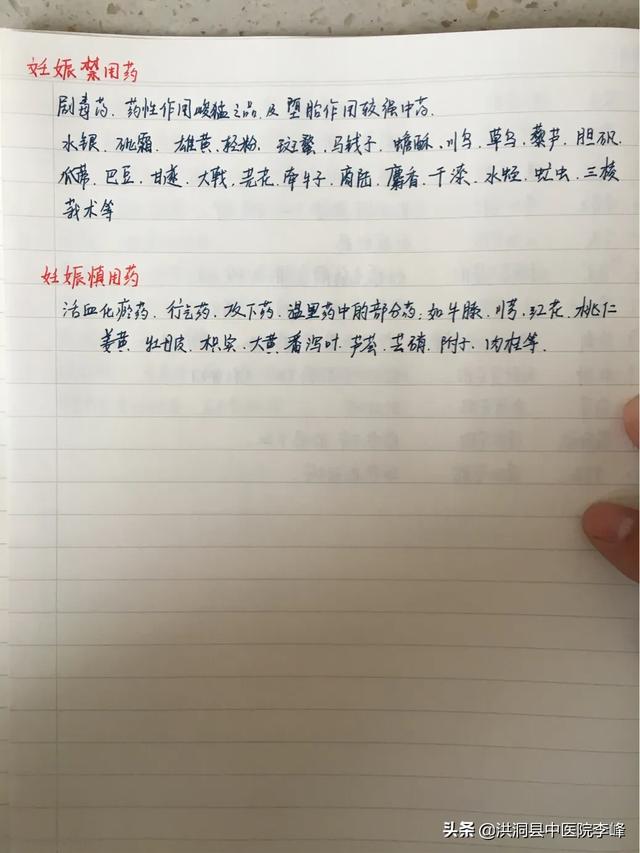 妊娠禁用药
剧毒药、药性作用峻猛之品及堕胎作用较强中药.
水银、砒霜、雄黄、轻粉、斑蝥、马钱子、蟾酥、川乌、草乌、藜芦、胆矾、
瓜蒂、巴豆、甘遂、大戟、芫花、牵牛子、商陆、麝香、干漆、水蛭、虻虫、三棱
莪术等
妊娠慎用药
活血化瘀药、行气药、攻下药、温里药中的部分药;如牛膝、川芎、红花、桃仁
姜黄、牡丹皮、枳实、大黄、番泻叶、芦荟、芒硝、附子、肉桂等.
头条 @洪洞县中医院李峰